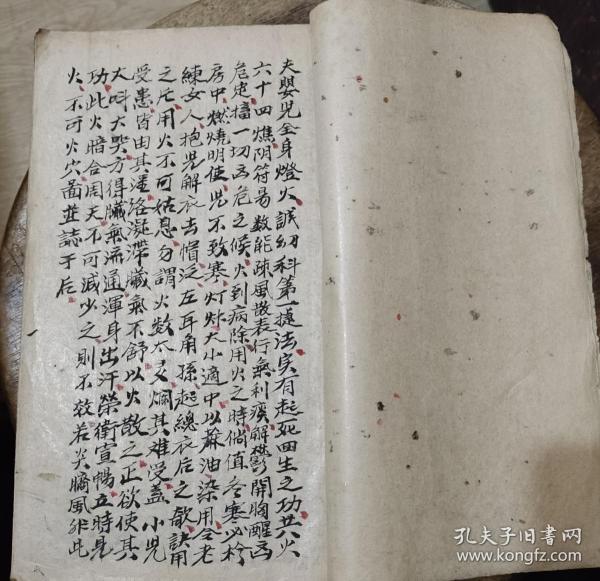 夫嬰兒全身燈火誠幼科第一捷法实有起死回生之功共六火
六十四燋阴符易数能疎風散表行氣利痰解鬱開胸醒
危定搐一切之危之候火到病除用火之時倘值冬寒必於
房中燃燒明使児不致寒灯炷大小適中以蔴油染用令老
練女人抱児解衣去帽從左耳角孫起總衣后之歌訣用
之凡用火不可姑息勿謂火数太多爛其难受盖小児
受患皆由其凝滯臟氣不舒以火散之正欲使其
大呌大哭方得臟氣流通渾身出汗榮衛宣暢立時見
功此火暗合周天不可減少之則不效若臍風非此
火不可火穴啚並誌于后
孔夫子旧书网
www.kongfz.com